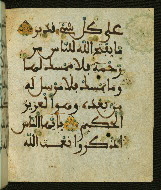 على كل شيء قدير
ما يفتح الله للناس من
رحمة فلا ممسك لها
وما يمسك فلا مرسل له
من بعده وهو العزيز
الحكيم يا أيها الناس
اذكروا نعمت الله